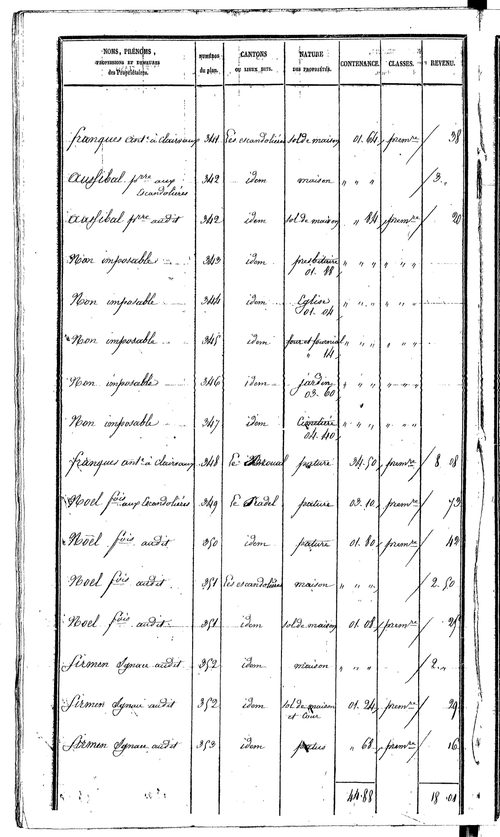 NOMS, PRÉNOMS, PROFESSIONS ET DEMEURES des Propriétaires. | NUMÉROS du plan. | CANTONS OU LIEUX DITS. | NATURE DES PROPRIÉTÉS. | CONTENANCE. | CLASSES. | REVENU.
franques ant.e à clairvaux 341 Les escandolières sol de maison 01.64 prem.re 38
Aussibal p.rre aux Escandolières 342 idem maison " " " 3 "
Aussibal p.rre audit 342 idem sol de maison " 84 prem.re 20
Non imposable 343 idem presbitaire 01.88 " " " " " "
Non imposable 344 idem Eglise 01.04 " " " " "
Non imposable 345 idem four et fournial " 14 " " " " " "
Non imposable 346 idem jardin 03.60 " " " " " "
Non imposable 347 idem Cimetière 04.40 " " " " "
franques ant.e à clairvaux 348 Le pature 34.50 prem.re 8 08
Noel fois aux Escandolières 349 Le Pradel pature 03.10 prem.re 73
Noël fois audit 350 idem pature 01.80 prem.re 42
Noel fois audit 351 Les escandolières maison " " " 2.50
Noel fois audit 351 idem sol de maison 01.08 prem.re 25
Sirmen Ignace audit 352 idem maison " " " 2 "
Sirmen Ignace audit 352 idem sol de maison et cour 01.24 prem.re 29
Sirmen Ignace audit 353 idem paties " 68 prem.re 16
44.88 18.01